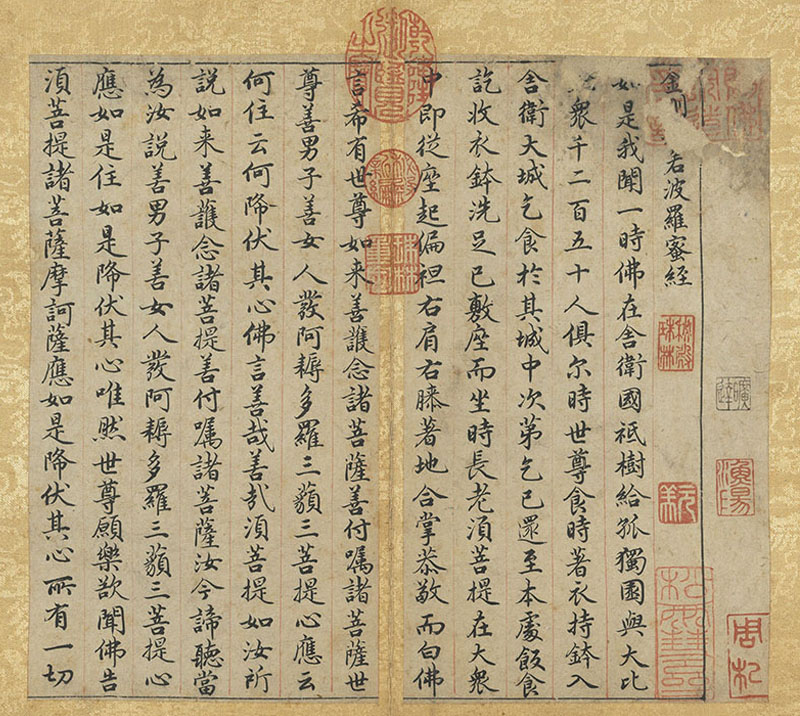 金 若波羅蜜経
如是我聞一時佛在舍衛國祇樹給孤獨園與大比
衆千二百五十人俱尔時世尊食時著衣持鉢入
舍衛大城乞食於其城中次第乞已還至本處飯食
訖收衣鉢洗足已敷座而坐時長老須菩提在大衆
中即從座起偏袒右肩右膝著地合掌恭敬而白佛
言希有世尊如来善護念諸菩薩善付囑諸菩薩世
尊善男子善女人發阿耨多羅三藐三菩提心應云
何住云何降伏其心佛言善哉善哉須菩提如汝所
說如来善護念諸菩提善付囑諸菩薩汝今諦聽當
為汝說善男子善女人發阿耨多羅三藐三菩提心
應如是住如是降伏其心唯然世尊願樂欲聞佛告
須菩提諸菩薩摩訶薩應如是降伏其心所有一切